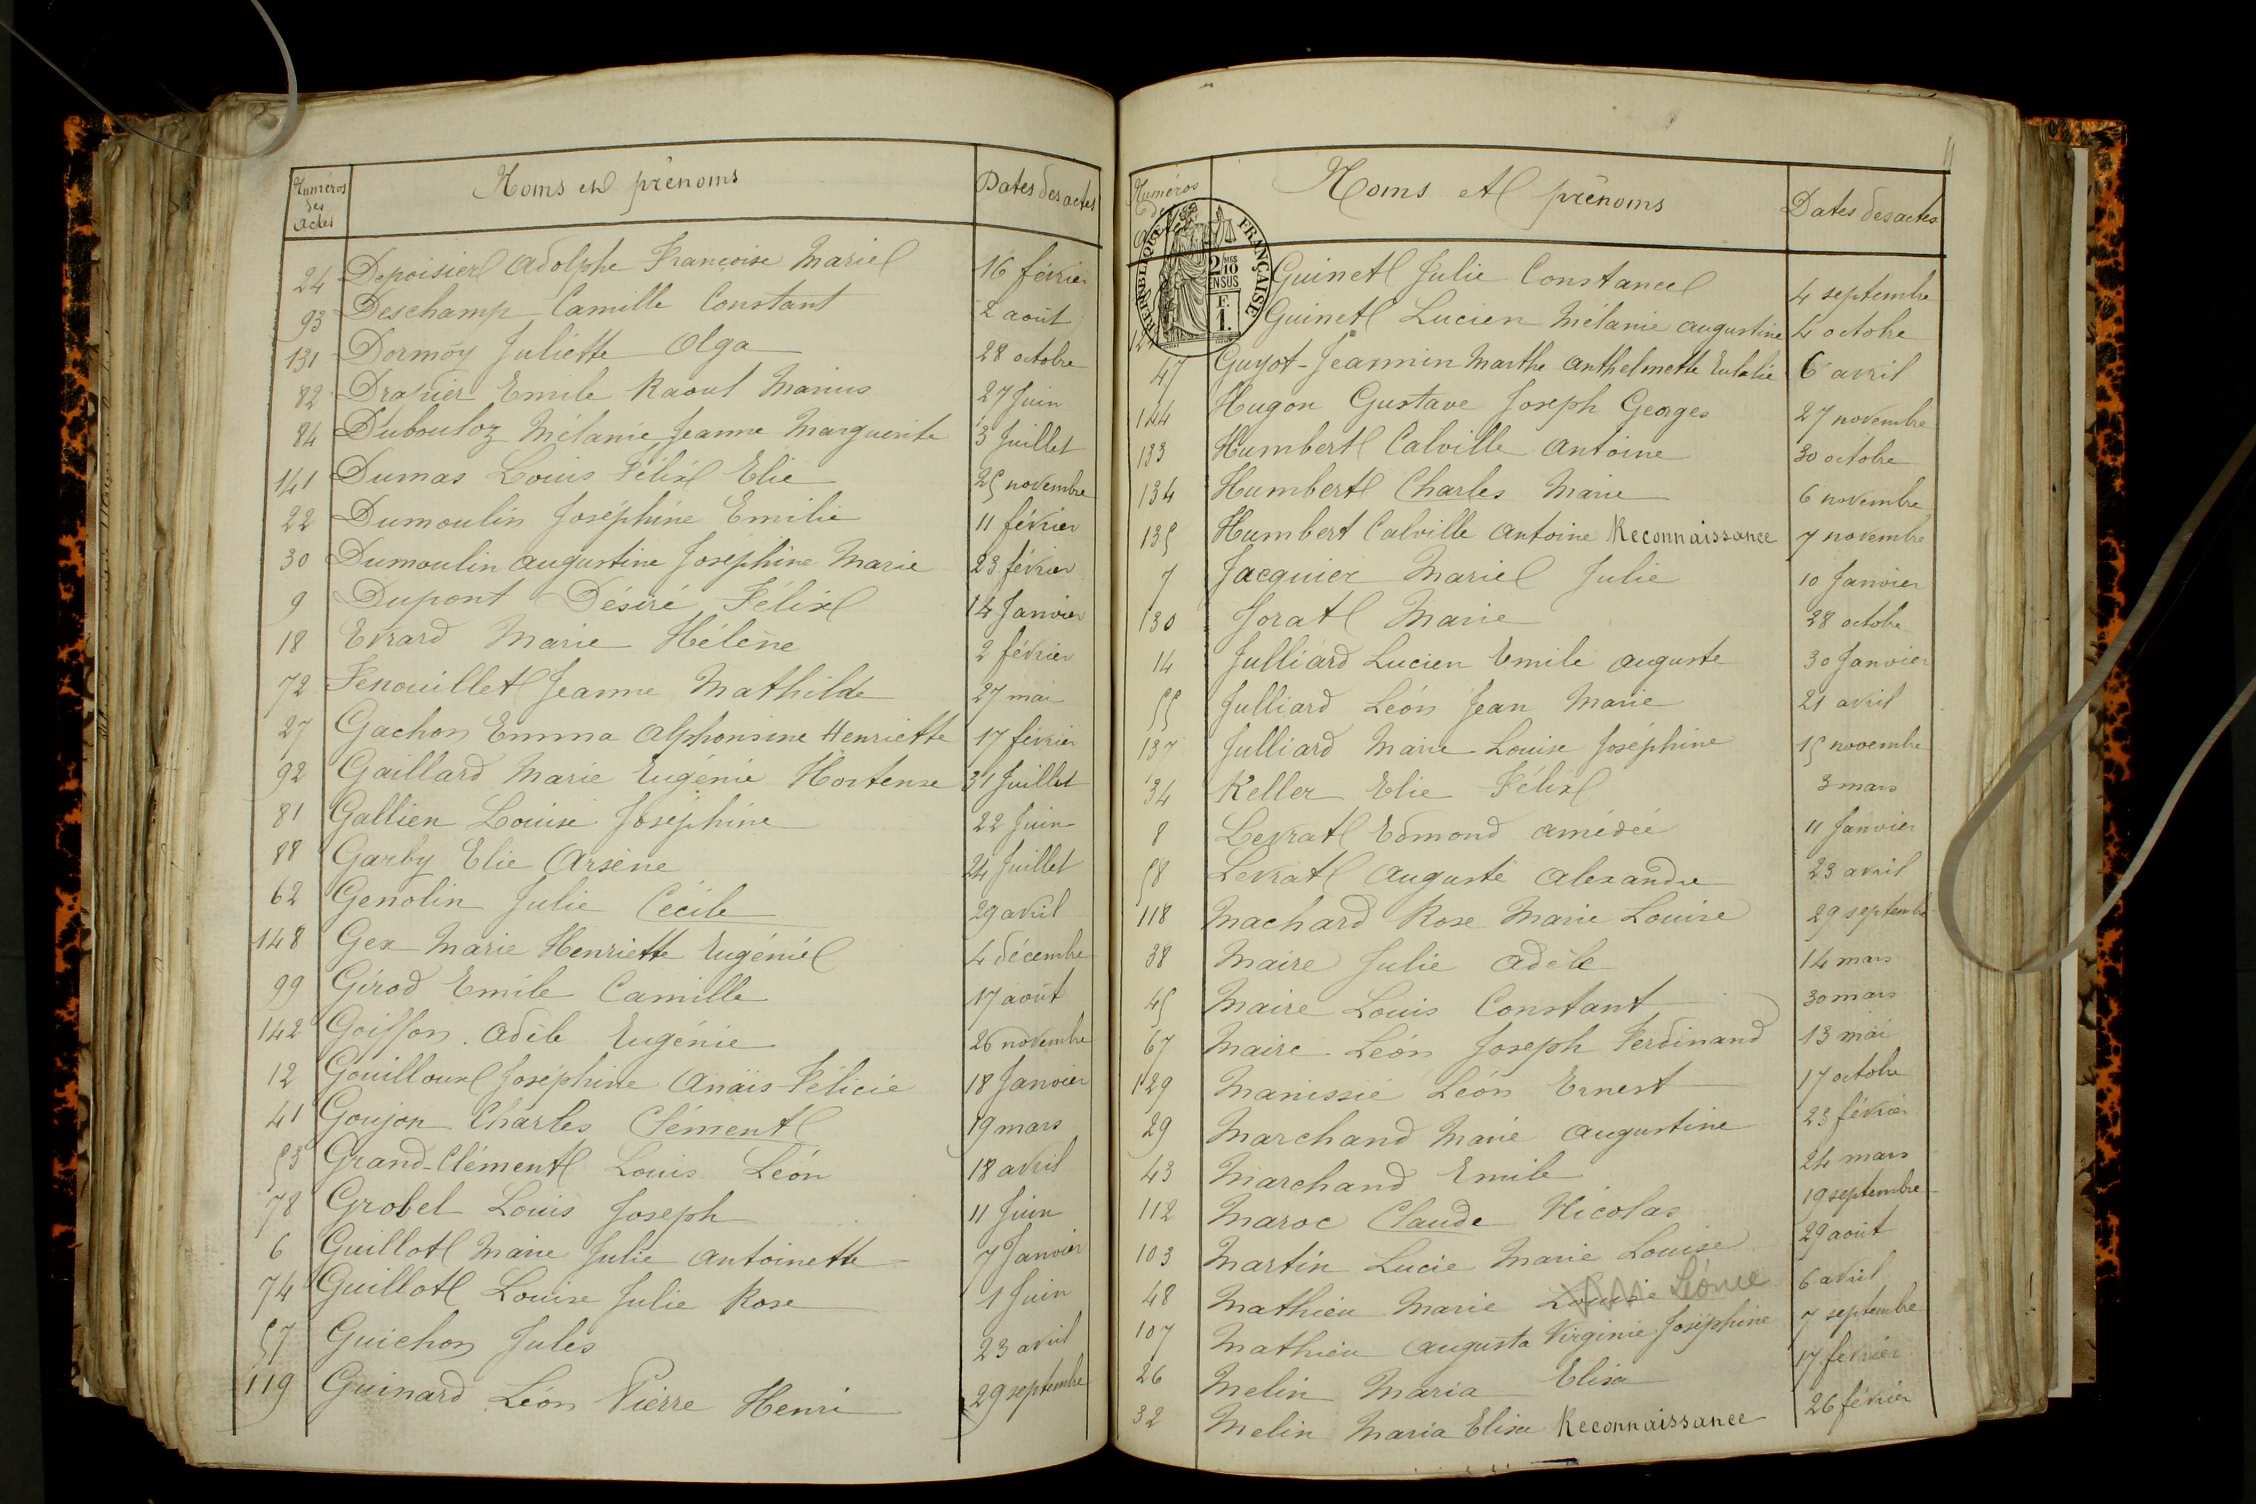 Numéros des actes Noms et prénoms Dates des actes
24 Depoisier Adolphe Françoise Marie 16 février
93 Deschamp Camille Constant 2 août
131 Dormoy Juliette Olga 28 octobre
82 Drapier Emile Raoul Marius 27 Juin
84 Dubouloz Mélanie Jeanne Marguerite 3 Juillet
141 Dumas Louis Félix Elie 25 novembre
22 Dumoulin Joséphine Emilie 11 février
30 Dumoulin Augustine Joséphine Marie 23 février
9 Dupont Désiré Félix 14 Janvier
18 Evrard Marie Hélène 2 février
72 Fenouillet Jeanne Mathilde 27 mai
27 Gachon Emma Alphonsine Henriette 17 février
92 Gaillard Marie Eugénie Hortense 31 Juillet
81 Gallien Louise Joséphine 22 Juin
88 Garby Elie Arsène 24 Juillet
62 Genolin Julie Cécile 29 avril
148 Gex Marie Henriette Eugénie 4 décembre
99 Girod Emile Camille 17 août
142 Goiffon Adèle Eugénie 26 novembre
12 Gouilloux Joséphine Anaïs Félicie 18 Janvier
41 Goujon Charles Clément 19 mars
53 Grand-Clément Louis Léon 18 avril
78 Grobel Louis Joseph 11 Juin
6 Guillot Marie Julie Antoinette 7 Janvier
74 Guillot Louise Julie Rose 1 Juin
57 Guichon Jules 23 avril
119 Guinard Léon Pierre Henri 29 septembre
Numéros des Noms et prénoms Dates des actes
RÉPUBLIQUE FRANÇAISE
2/10 EN SUS
F. 1.
Guinet Julie Constance 4 septembre
Guinet Lucien Mélanie Augustine 4 octobre
47 Guyot-Jeannin Marthe Anthelmette Eulalie 6 avril
144 Hugon Gustave Joseph Georges 27 novembre
133 Humbert Calville Antoine 30 octobre
134 Humbert Charles Marie 6 novembre
135 Humbert Calville Antoine Reconnaissance 7 novembre
7 Jacquier Marie Julie 10 Janvier
130 Jorat Marie 28 octobre
14 Julliard Lucien Emile Auguste 30 Janvier
55 Julliard Léon Jean Marie 21 avril
137 Julliard Marie Louise Joséphine 15 novembre
34 Keller Elie Félix 3 mars
8 Levrat Edmond Amédée 11 Janvier
58 Levrat Auguste Alexandre 23 avril
118 Machard Rose Marie Louise 29 septembre
38 Maire Julie Adèle 14 mars
45 Maire Louis Constant 30 mars
67 Maire Léon Joseph Ferdinand 13 mai
129 Manissié Léon Ernest 17 octobre
29 Marchand Marie Augustine 23 février
43 Marchand Emile 24 mars
112 Maroc Claude Nicolas 19 septembre
103 Martin Lucie Marie Louise 29 août
48 Mathieu Marie Louise Léonce 6 avril
107 Mathieu Augusta Virginie Joséphine 7 septembre
26 Melin Maria Elisa 17 février
32 Melin Maria Elisa Reconnaissance 26 février